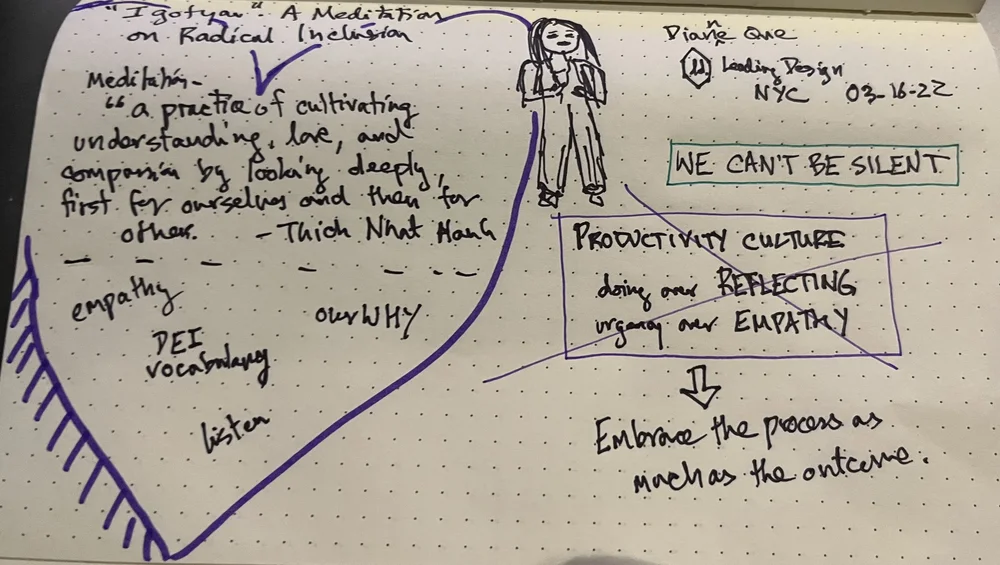 "I got you": A Meditation
on Radical Inclusion
Meditation -
"a practice of cultivating
understanding, love, and
compassion by looking deeply,
first for ourselves and then for
others. - Thich Nhat Hanh
empathy
our WHY
DEI
vocabulary
listen
Dianne Que
Leading Design
NYC 03-16-22
WE CAN'T BE SILENT
PRODUCTIVITY CULTURE
doing over REFLECTING
urgency over EMPATHY
Embrace the process as
much as the outcome.